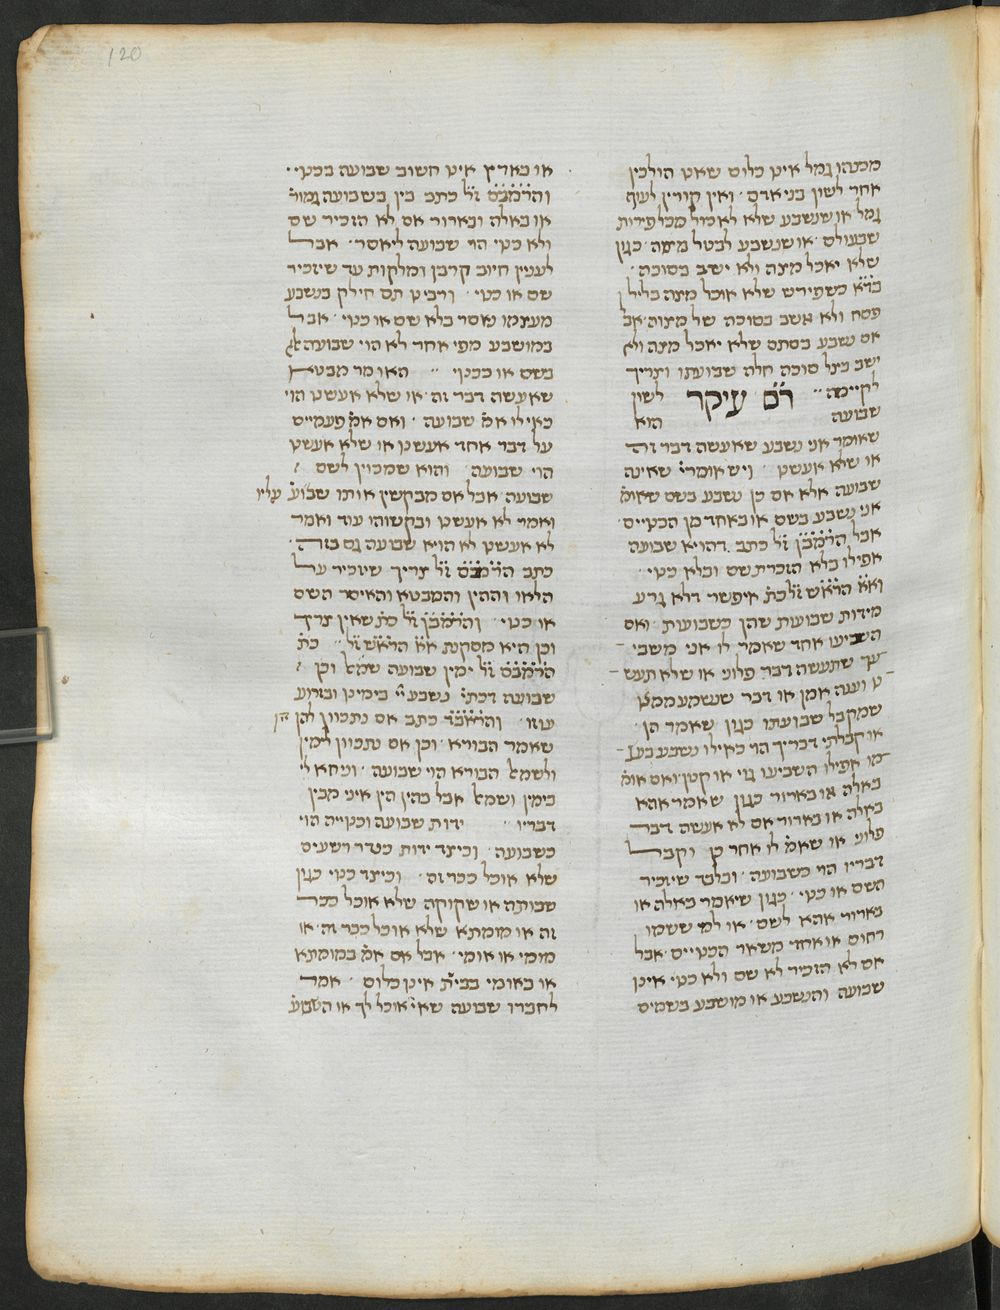 120
מכנהו גמל אינו כלום שאינו הולכין
אחר לשון בני אדם ׳ ואין קורין לעוף
גמל או שנשבע שלא לאכול מכל פירות
שבעולם ׳ או שנשבע לבטל מצוה ׳ כגון
שלא יאכל מצה ולא ישב בסוכה ׳
בד״א כשפירש שלא אוכל מצה בליל
פסח ולא אשב בסוכה של מצוה ׳ אבל
אם נשבע בסתם שלא יאכל מצה ולא
ישב בצל סוכה חלה שבועתו וצריך
לקיימה ״ ר״ם עיקר לשון
שבועה הוא
שאומר אני נשבע שאעשה דבר זה
או שלא אעשנו ׳ ויש אומרי׳ שאינה
שבועה אלא אם כן נשבע בשם שאומ׳
אני נשבע בשם או באחד מן הכנויים ׳
אבל הרמב״ן ז״ל כתב דהויא שבועה
אפילו בלא הזכרת שם ובלא כנוי ׳
וא״א הרא״ש ז״ל כת׳ איפשר דלא גרע
מידות שבועות שהן כשבועות ׳ ואם
השביעו אחד שאמר לו אני משבי
עך שתעשה דבר פלוני או שלא תעש
נו וענה אמן או דבר שנשמע ממנו
שמקבל שבועתו כגון שאמר הן ׳
או קבלתי דבריך הרי כאילו נשבע בעצ
מו אפילו השביעו גוי או קטן ׳ ואם אומ׳
באלה או בארור כגון שאמר אהא
באלה או בארור אם לא אעשה דבר
פלוני או שאמ׳ לו אחר כן וקבל
דבריו הרי כשבועה ׳ ובלבד שיזכיר
השם או כנוי ׳ כגון שיאמר באלה או
בארור אהא לשם ׳ או למי ששמו
רחום או אחד משאר הכנויים ׳ אבל
אם לא הזכיר לא שם ולא כנוי אינו
שבועה והנשבע או מושבע בשמים
או בארץ אינו חשוב שבועה בכנוי ׳
והרמב״ם ז״ל כתב בין בשבועה גמור׳
או באלה ובארור אם לא הזכיר שם
ולא כנוי הרי שבועה ליאסר ׳ אבל
לענין חיוב קרבן ומלקות עד שיזכיר
שם או כנוי ׳ ורבינו תם חילק בנשבע
מעצמו נאסר בלא שם או כנוי ׳ אבל
במושבע מפי אחר לא הוי שבועה אלא
בשם או בכנוי ״ האומר מבטא
שאעשה דבר זה ׳ או שלא אעשנו הוי
כאילו אמ׳ שבועה ׳ ואם אמ׳ פעמיים
על דבר אחד אעשנו או שלא אעשנו
הוי שבועה ׳ והוא שמכוין לשם
שבועה ׳ אבל אם מבקשין אותו שבוע׳ עליו
ואמר לא אעשנו ובקשוהו עוד ואמר
לא אעשנו לא הויא שבועה גם בזה ׳
כתב הרמב״ם ז״ל צריך שיזכיר על
הלאו וההין והמבטא והאיסר השם
או כנוי ״ והרמב״ן ז״ל כת׳ שאין צריך
וכן היא מסקנת א״א הרא״ש ז״ל ״ כת׳
הרמב״ם ז״ל ימין שבועה שמאל וכן
שבועה דכתי׳ נשבע יי׳ בימינו ובזרוע
עוזו ׳ והראב״ד כתב אם נתכוון להן הין
שאמר הבורא ׳ וכן אם נתכוון לימין
ולשמאל הבורא הוי שבועה ׳ וניחא לי
בימין ושמאל אבל בהין הין איני מבין
דבריו ״ ידות שבועה וכנוייה הוי
כשבועה ׳ וכיצד ידות כנדר רשעים
שלא אוכל ככר זה ׳ וכיצד כנוי כגון
שבותה או שקוקה שלא אוכל ככר
זה או מומתא שלא אוכל ככר זה ׳ או
מומי או אומי ׳ אבל אם אמ׳ במומתא
או באומי בבי״ת אינו כלום ׳ אמר
לחבירו שבועה שאיני אוכל לך או השבוע׳